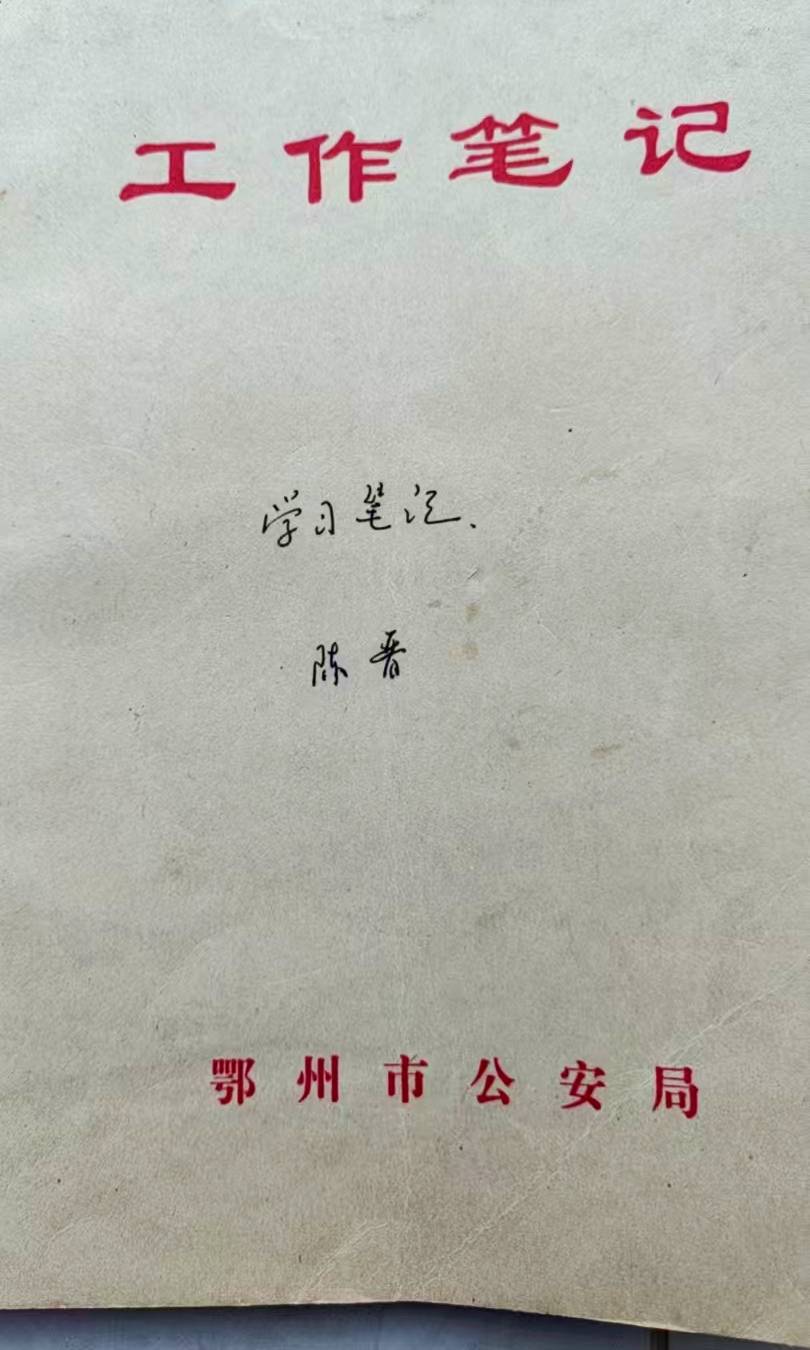 工作笔记
学习笔记.
陈晋
鄂州市公安局